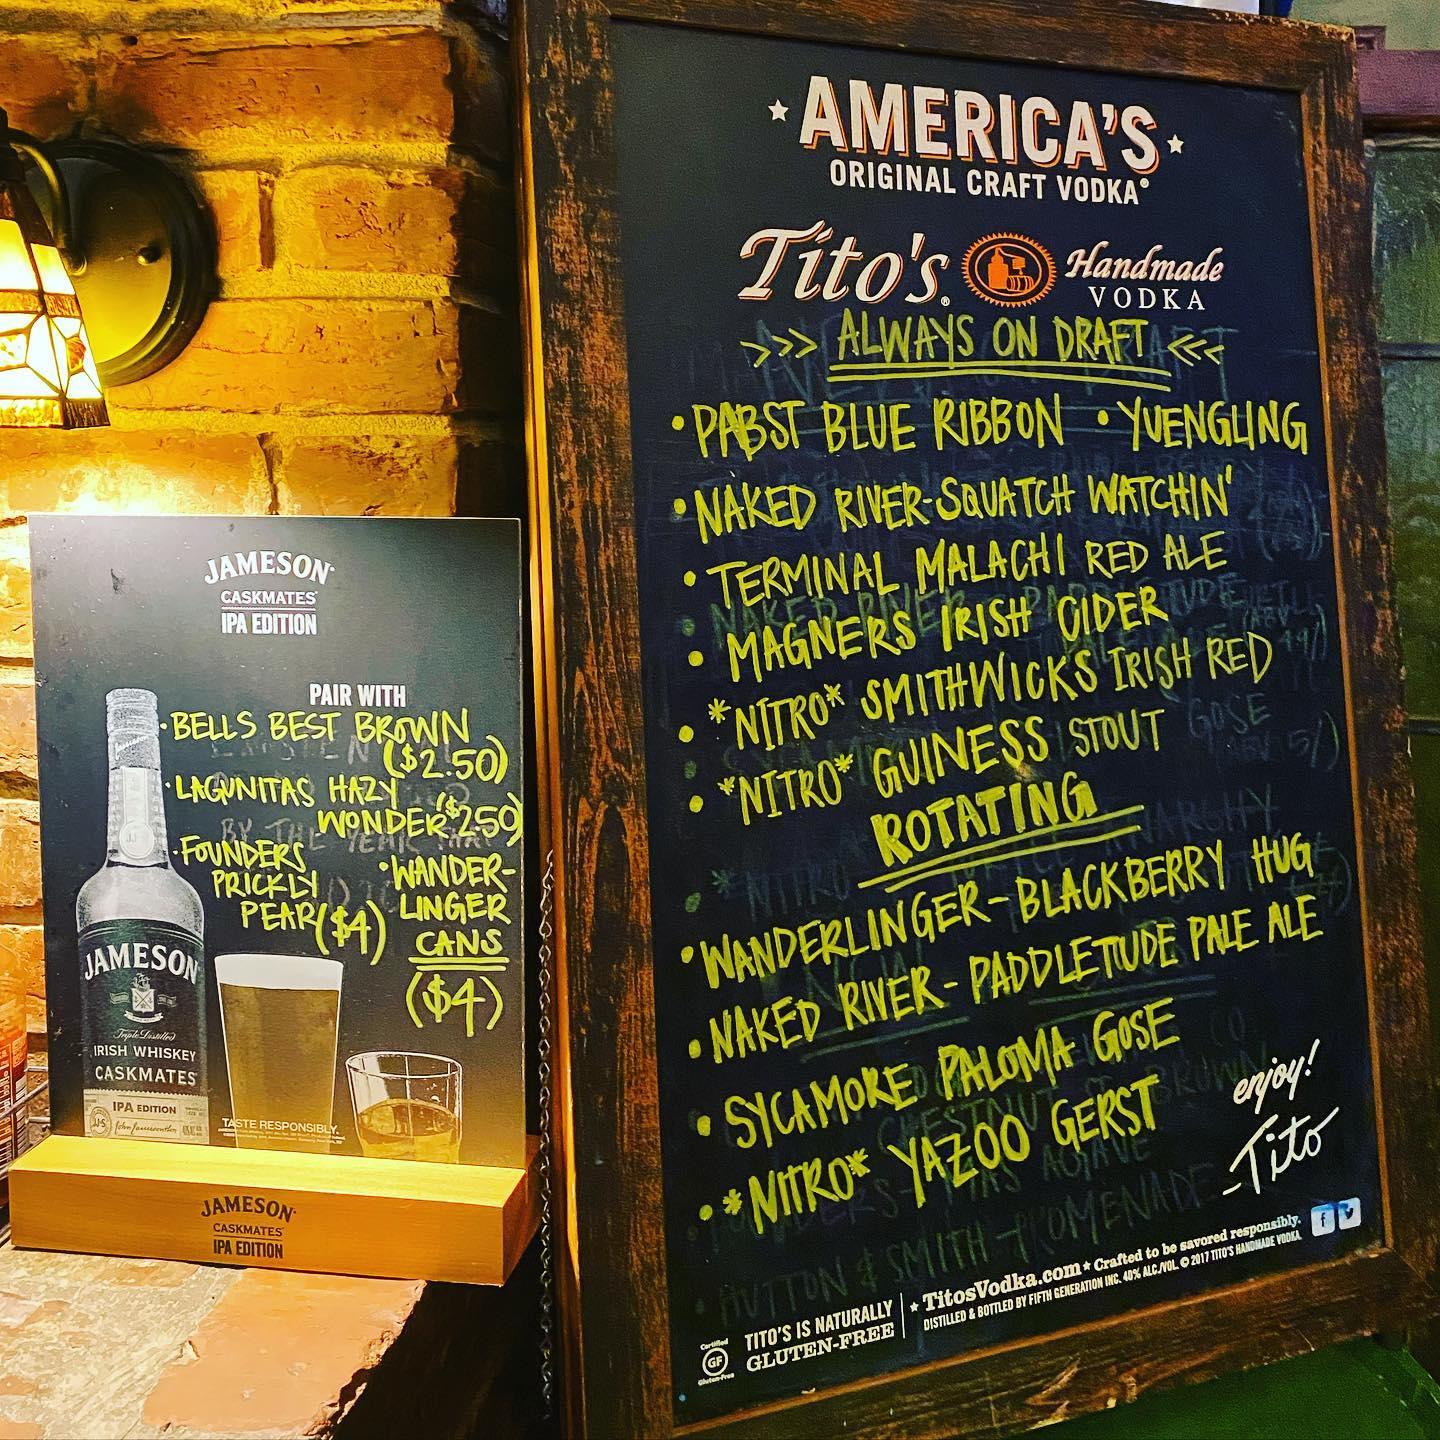 JAMESON
CASKMATES
IPA EDITION
PAIR WITH
• BELLS BEST BROWN
($2.50)
• LAGUNITAS HAZY
WONDER ($2.50)
• FOUNDERS
PRICKLY
PEAR ($4)
• WANDER-
LINGER
CANS
($4)
JAMESON
Triple Distilled
IRISH WHISKEY
CASKMATES
IPA EDITION
TASTE RESPONSIBLY.
JAMESON
CASKMATES
IPA EDITION
★ AMERICA'S ★
ORIGINAL CRAFT VODKA®
Tito's® Handmade
VODKA
>>> ALWAYS ON DRAFT <<<
• PABST BLUE RIBBON • YUENGLING
• NAKED RIVER-SQUATCH WATCHIN'
• TERMINAL MALACHI RED ALE
• MAGNERS IRISH CIDER
• *NITRO* SMITHWICKS IRISH RED
• *NITRO* GUINESS STOUT
ROTATING
• WANDERLINGER-BLACKBERRY HUG
• NAKED RIVER-PADDLETUDE PALE ALE
• SYCAMORE PALOMA GOSE
• *NITRO* YAZOO GERST
HUTTON & SMITH - PROMENADE
enjoy!
-Tito
Certified
GF
Gluten-Free
TITO'S IS NATURALLY
GLUTEN-FREE
★ TitosVodka.com ★ Crafted to be savored responsibly.
DISTILLED & BOTTLED BY FIFTH GENERATION INC. 40% ALC./VOL. © 2017 TITO'S HANDMADE VODKA.